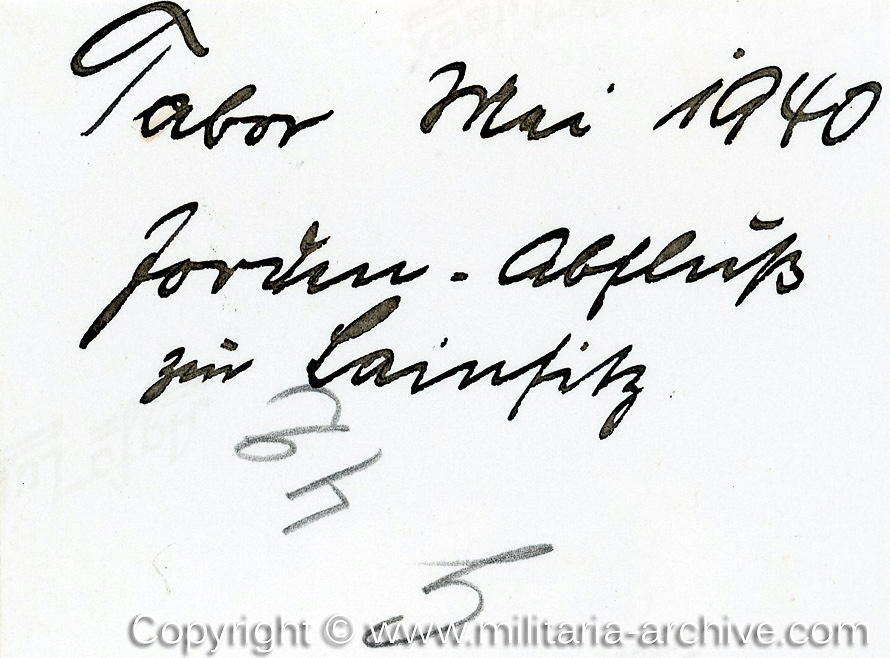 Tabor Mai 1940
Jordan-Abfluß
zur Lainsitz
5
Copyright © www.militaria-archive.com